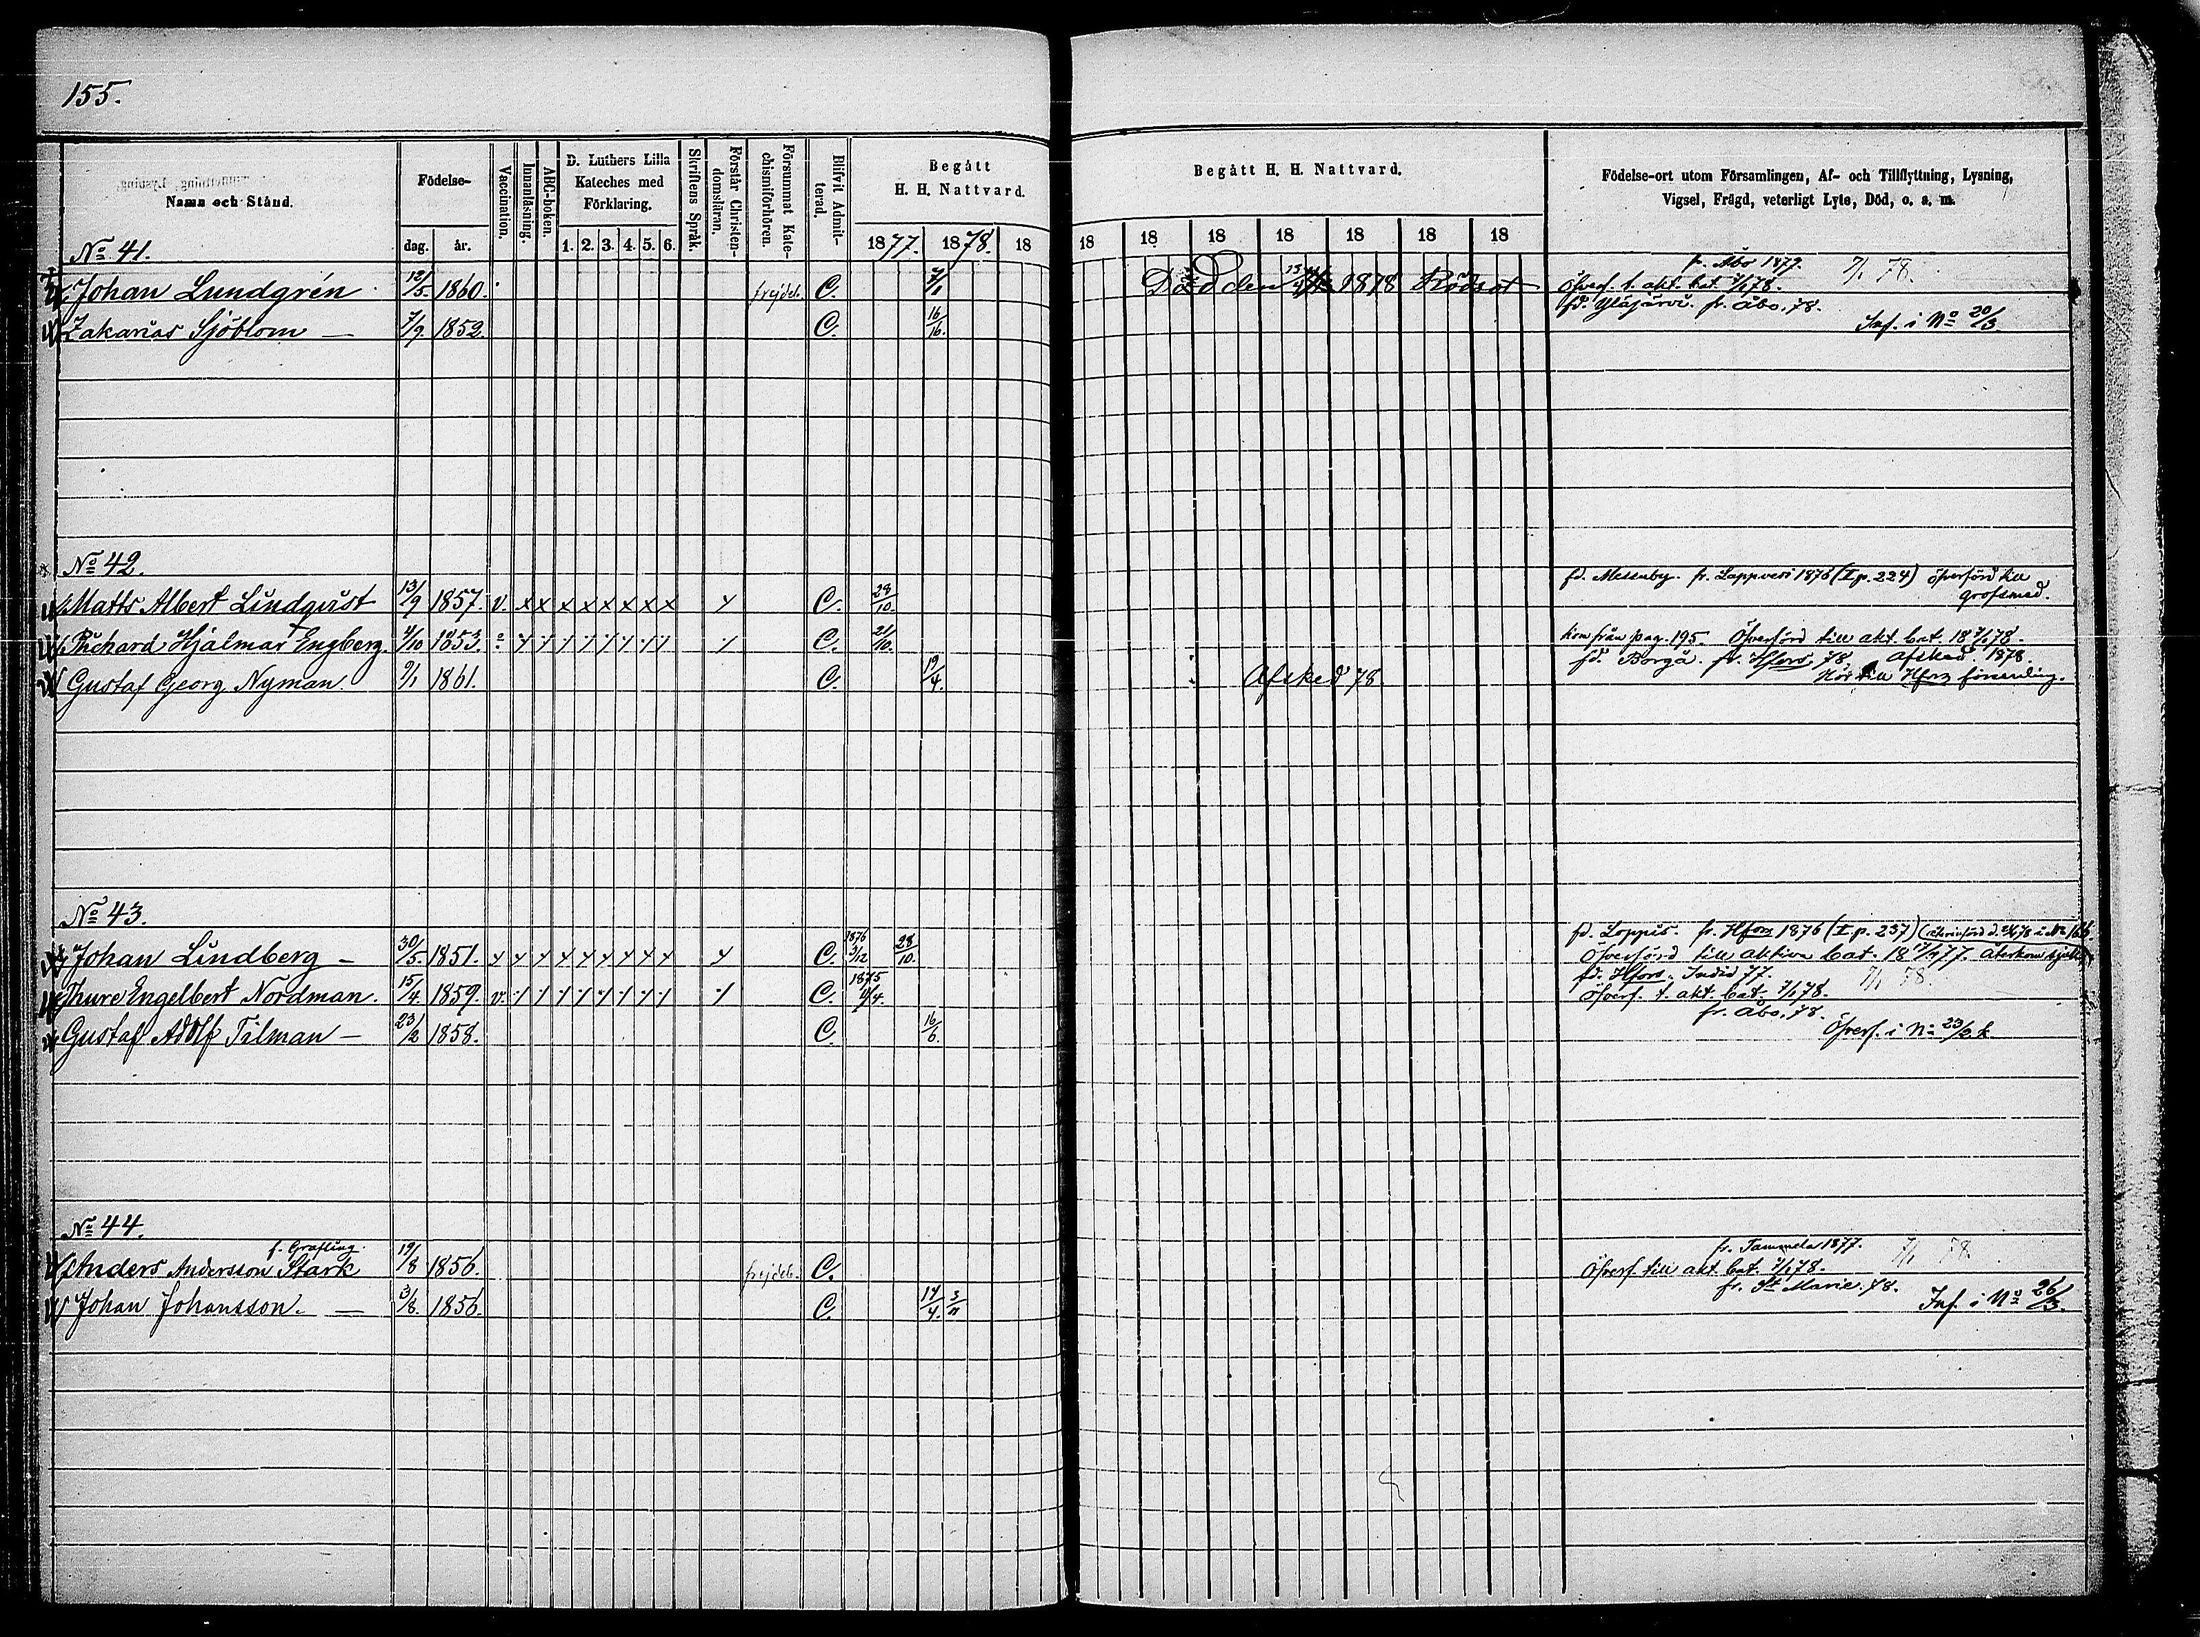 155.
Namn och Stånd.
Födelse-
dag. år.
Vaccination.
Innanläsning.
ABC-boken.
D. Luthers Lilla
Kateches med
Förklaring.
1. 2. 3. 4. 5. 6.
Skriftens Språk.
Förstår Christen-
domsläran.
Försummat Kate-
chismiförhören.
Blifvit Admit-
terad.
Begått
H. H. Nattvard.
1877. 1878. 18
Begått H. H. Nattvard.
18 18 18 18 18 18 18
Födelse-ort utom Församlingen, Af- och Tillflyttning, Lysning,
Vigsel, Frägd, veterligt Lyte, Död, o. s. m.
No 41.
fr. Åbo 1877. 7/1 78.
Johan Lundgrén 12/5. 1860. frejdeb. C. 7/1 Död den 1878 Rödsot Öfverf. t. akt. bat. 7/1 78.
fd. Ylöjärvi. fr. Åbo, 78.
Zakarias Sjöblom — 7/9. 1852. C. 16/16. Inf. i No 20/3.
No 42.
fd. Messuby. fr. Lappvesi 1876 (I p. 224) öfverförd till
Matts Albert Lindqvist 13/9 1857. v. x x x x x x x x x C. 28/10. grofsmed.
Richard Hjalmar Engberg. 4/10 1853. C. 21/10. kom från pag. 195. Öfverförd till akt. bat. 18 7/1 78.
fd. Borgå. fr. Hfors, 78. Afsked. 1878.
Gustaf Georg Nyman. 9/1 1861. C. 19/4. Afsked 78. Hör till Hfors församling.
No 43.
fd. Loppis. fr. Hfors 1876 (I p. 237)
Johan Lindberg — 30/5. 1851. x x x x x x x x x x C. 1876 3/12 28/10. Öfverförd till aktiva bat. 18
fd. Hfors. Indid 77. 7/1 78.
Thure Engelbert Nordman. 15/4. 1859. v. C. 1875 Öfverf. t. akt. bat. 7/1 78.
fr. Åbo, 78.
Gustaf Adolf Tilman — 23/2 1858. C. 16/6. Öfverf. i No 23
No 44.
f. Grafling. fr. Tammela 1877. 7/1 78
Anders Andersson Stark 19/8 1856. frejdeb. C. Öfverf. till akt. bat. 7/1 78.
fr. St Marie. 78.
Johan Johansson. — 3/8. 1856. C. 14/4. 3/11 Inf. i No 26/3.